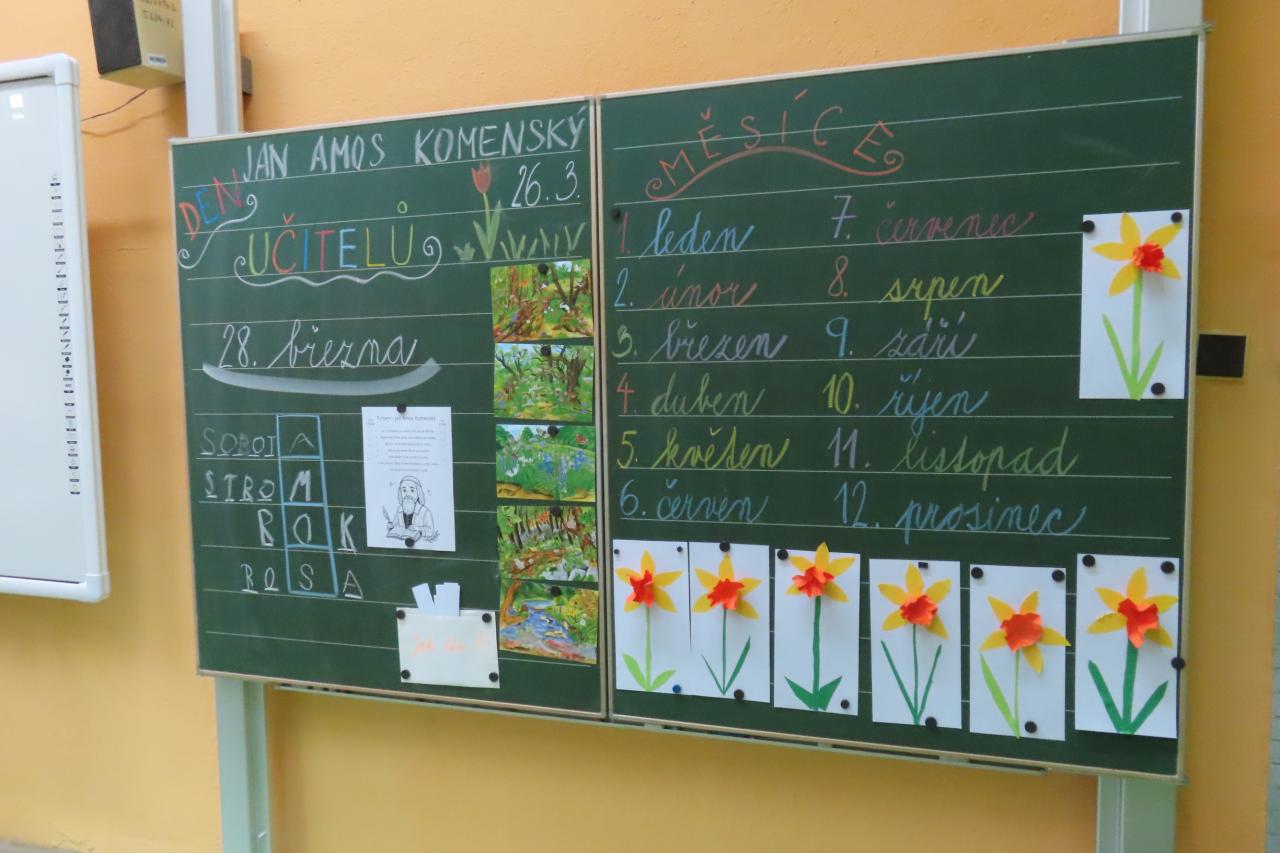 JAN AMOS KOMENSKÝ
DEN
26.3.
UČITELŮ
28. března
SOBOTA
STROM
BOK
ROSA
MĚSÍCE
1. leden
2. únor
3. březen
4. duben
5. květen
6. červen
7. červenec
8. srpen
9. září
10. říjen
11. listopad
12. prosinec